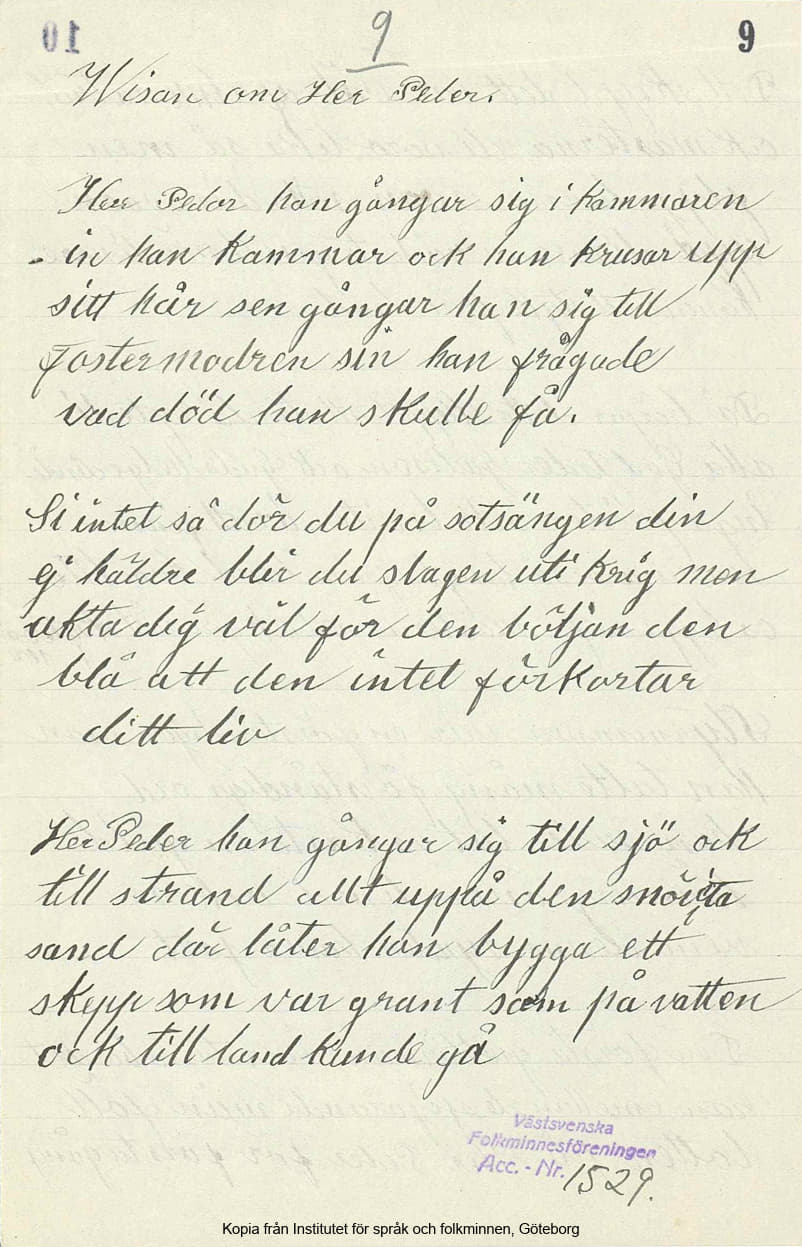 9
9
Wisan om Her Peder.
Her Peder han gångar sig i kammaren
- in han kammar ock han krusar upp
sitt hår sen gångar han sig till
fostermodren sin han frågade
vad död han skulle få.
Si intet så dör du på sotsängen din
ej häldre blir du slagen uti krig men
akta dig väl för den böljan den
blå att den intet förkortar
ditt liv
Her Peder han gångar sig till sjö ock
till strand allt uppå den snövita
sand där låter han bygga ett
skepp som var grant som på vatten
ock till land kunde gå
Västsvenska
Folkminnesföreningen
Acc. - Nr. 1529.
Kopia från Institutet för språk och folkminnen, Göteborg